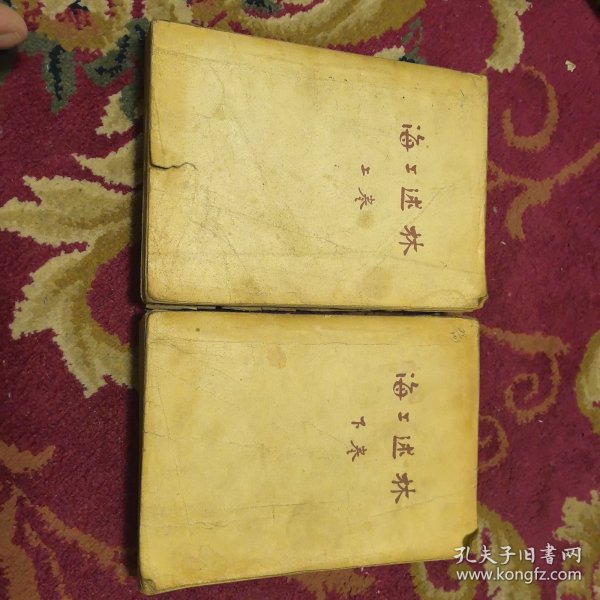 海上述林
上卷
海上述林
下卷
孔夫子旧書网
www.kongfz.com